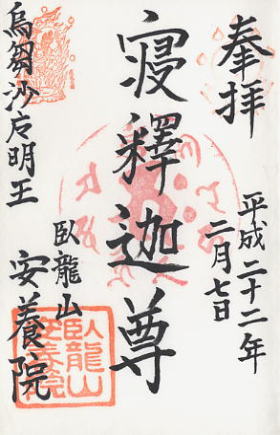 奉拝
平成二十二年
二月七日
寝釋迦尊
臥龍山
安養院
烏芻沙摩明王
臥龍山
安養院